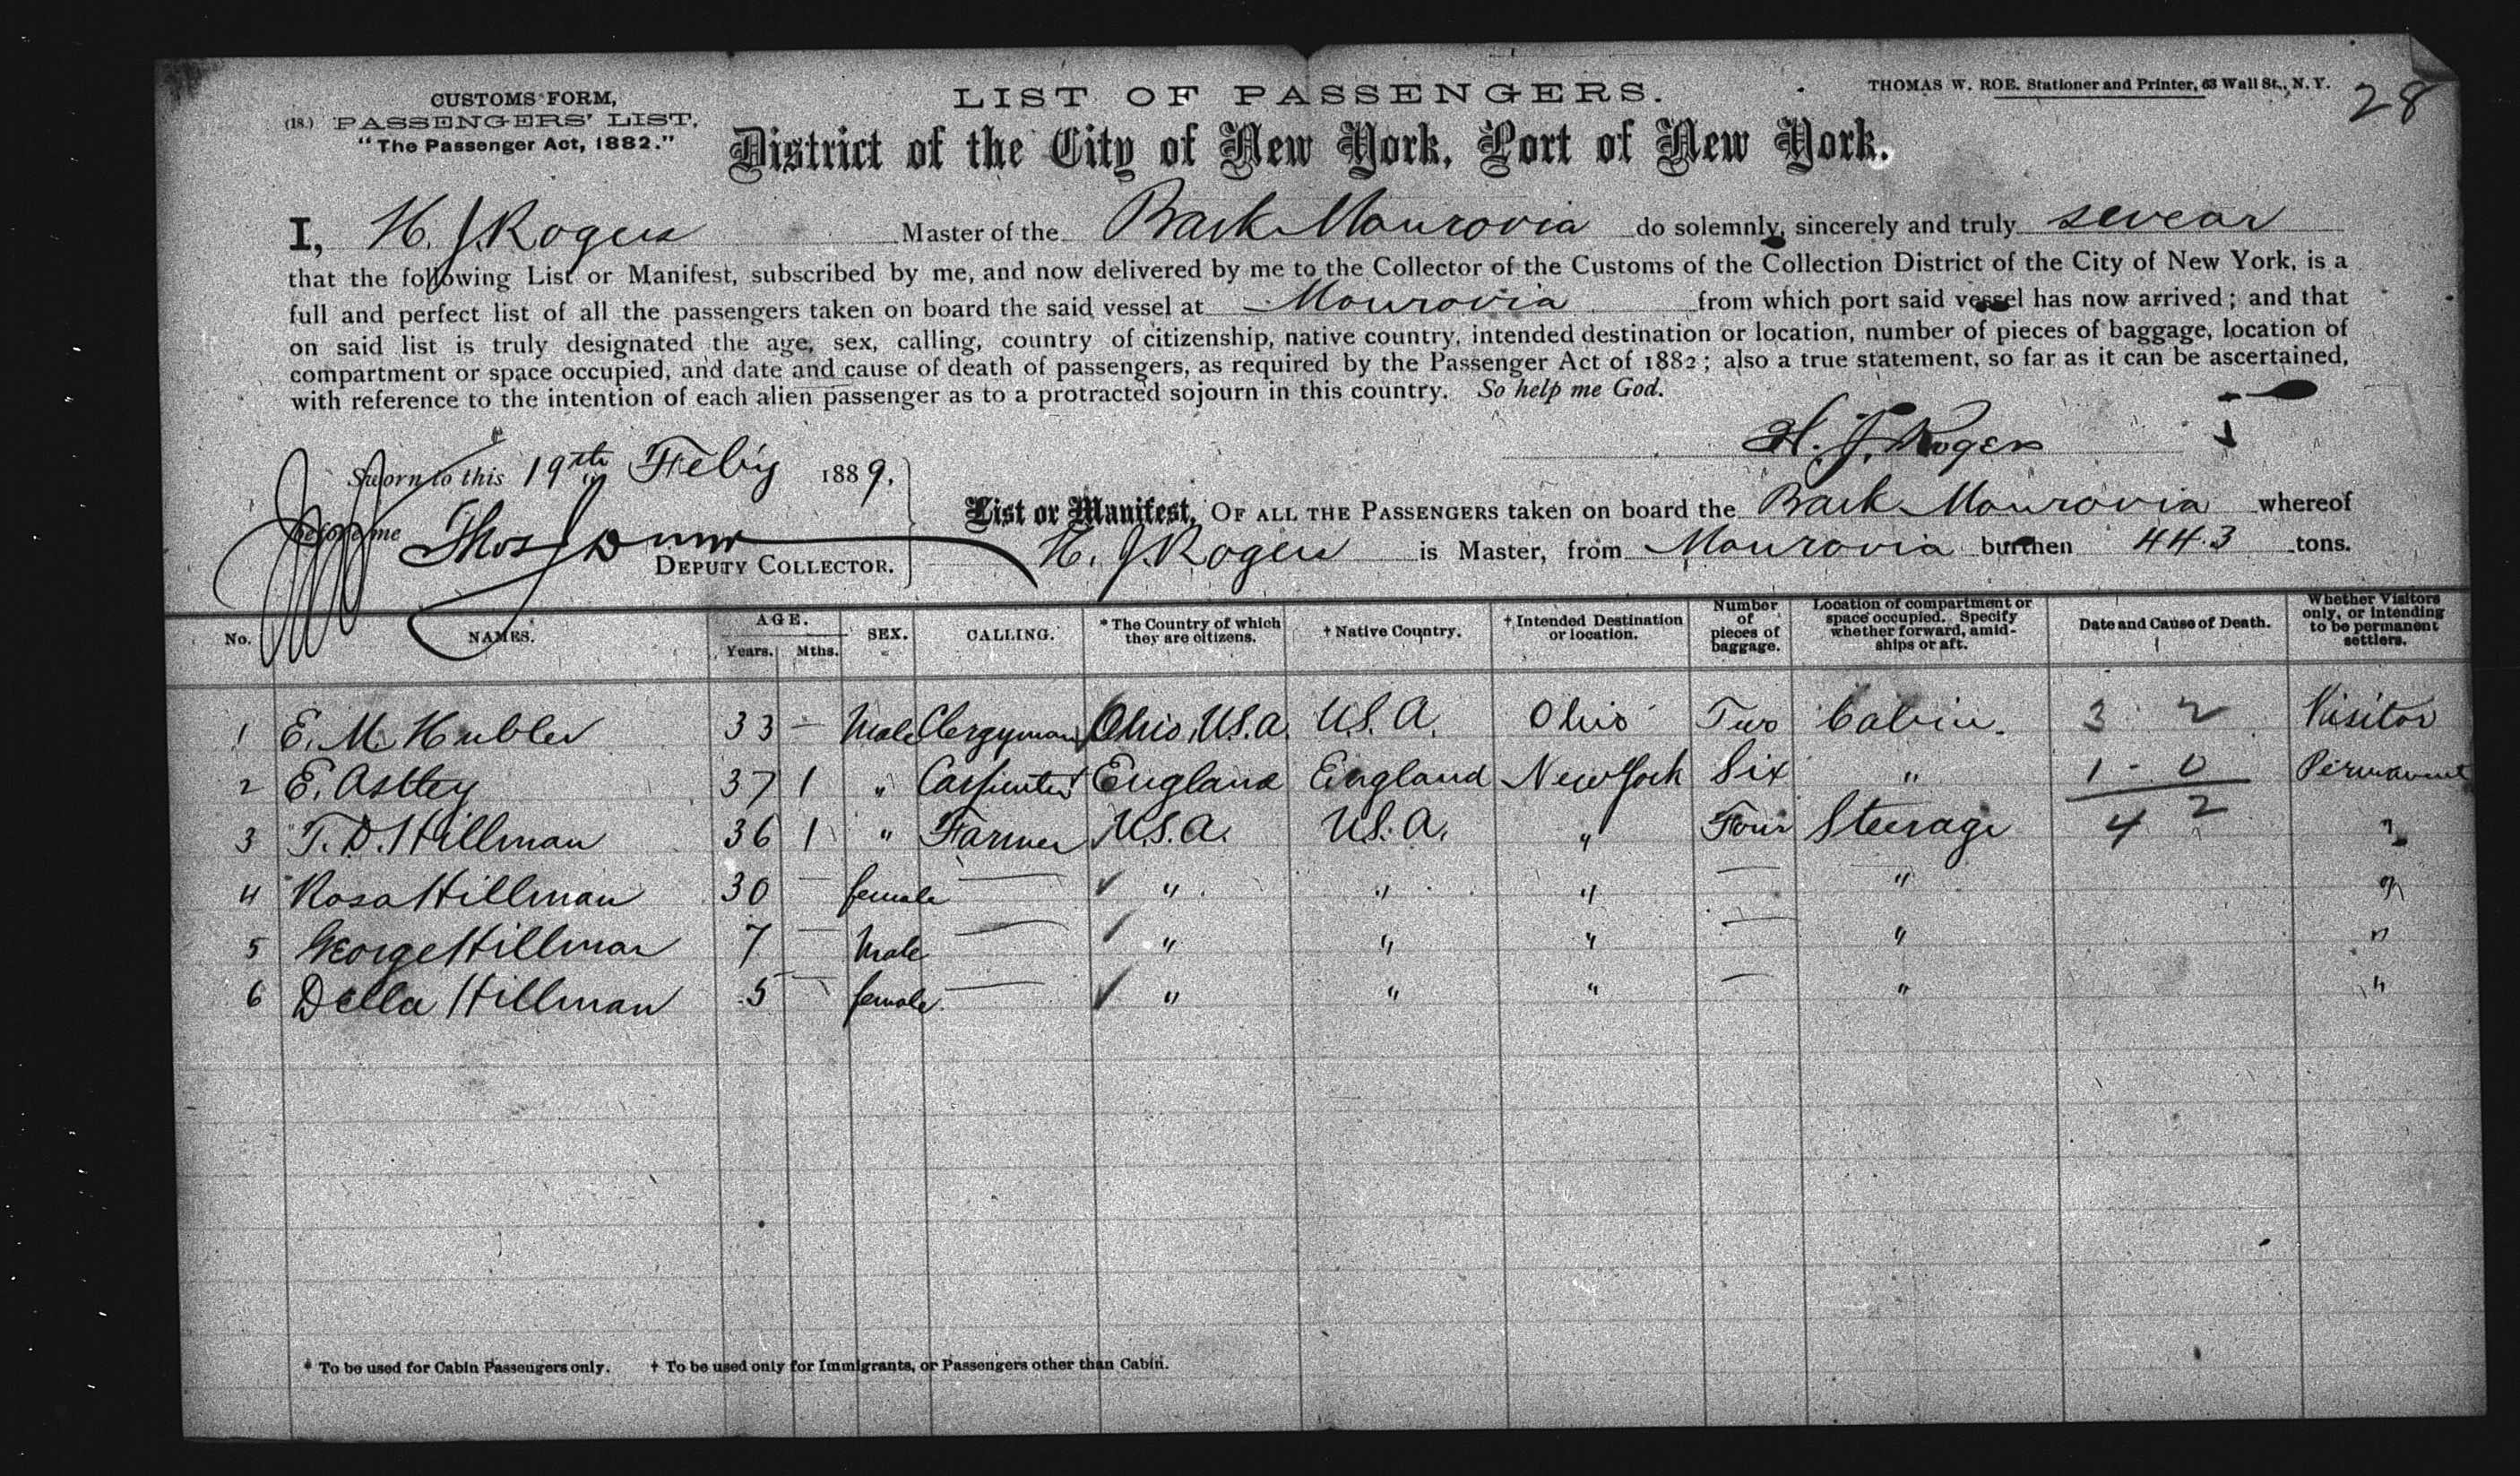 CUSTOMS FORM,
(18.) PASSENGERS' LIST,
"The Passenger Act, 1882."
LIST OF PASSENGERS.
THOMAS W. ROE. Stationer and Printer, 63 Wall St., N. Y.
28
District of the City of New York, Port of New York.
I, H. J. Rogers Master of the Bark Monrovia do solemnly, sincerely and truly swear
that the following List or Manifest, subscribed by me, and now delivered by me to the Collector of the Customs of the Collection District of the City of New York, is a
full and perfect list of all the passengers taken on board the said vessel at Monrovia from which port said vessel has now arrived; and that
on said list is truly designated the age, sex, calling, country of citizenship, native country, intended destination or location, number of pieces of baggage, location of
compartment or space occupied, and date and cause of death of passengers, as required by the Passenger Act of 1882; also a true statement, so far as it can be ascertained,
with reference to the intention of each alien passenger as to a protracted sojourn in this country. So help me God.
H. J. Rogers
Sworn to this 19th Feb'y 1889.
before me Thos J Dunn
DEPUTY COLLECTOR.
List or Manifest, OF ALL THE PASSENGERS taken on board the Bark Monrovia whereof
H. J. Rogers is Master, from Monrovia burthen 443 tons.
No. NAMES. AGE. Years. Mths. SEX. CALLING. * The Country of which they are citizens. † Native Country. † Intended Destination or location. Number of pieces of baggage. Location of compartment or space occupied. Specify whether forward, amidships or aft. Date and Cause of Death. Whether Visitors only, or intending to be permanent settlers.
1 E. M. Hubler 33 — Male Clergyman Ohio, U.S.A. U.S.A. Ohio Two Cabin. 3 2 Visitor
2 E. Astley 37 1 " Carpenter England England New York Six " 1 - 0 Permanent
3 T. D. Hillman 36 1 " Farmer U.S.A. U.S.A. " Four Steerage 4 2 "
4 Rosa Hillman 30 — female — " " " — " "
5 George Hillman 7 — Male — " " " — " "
6 Della Hillman 5 — female — " " " — " "
* To be used for Cabin Passengers only. † To be used only for Immigrants, or Passengers other than Cabin.